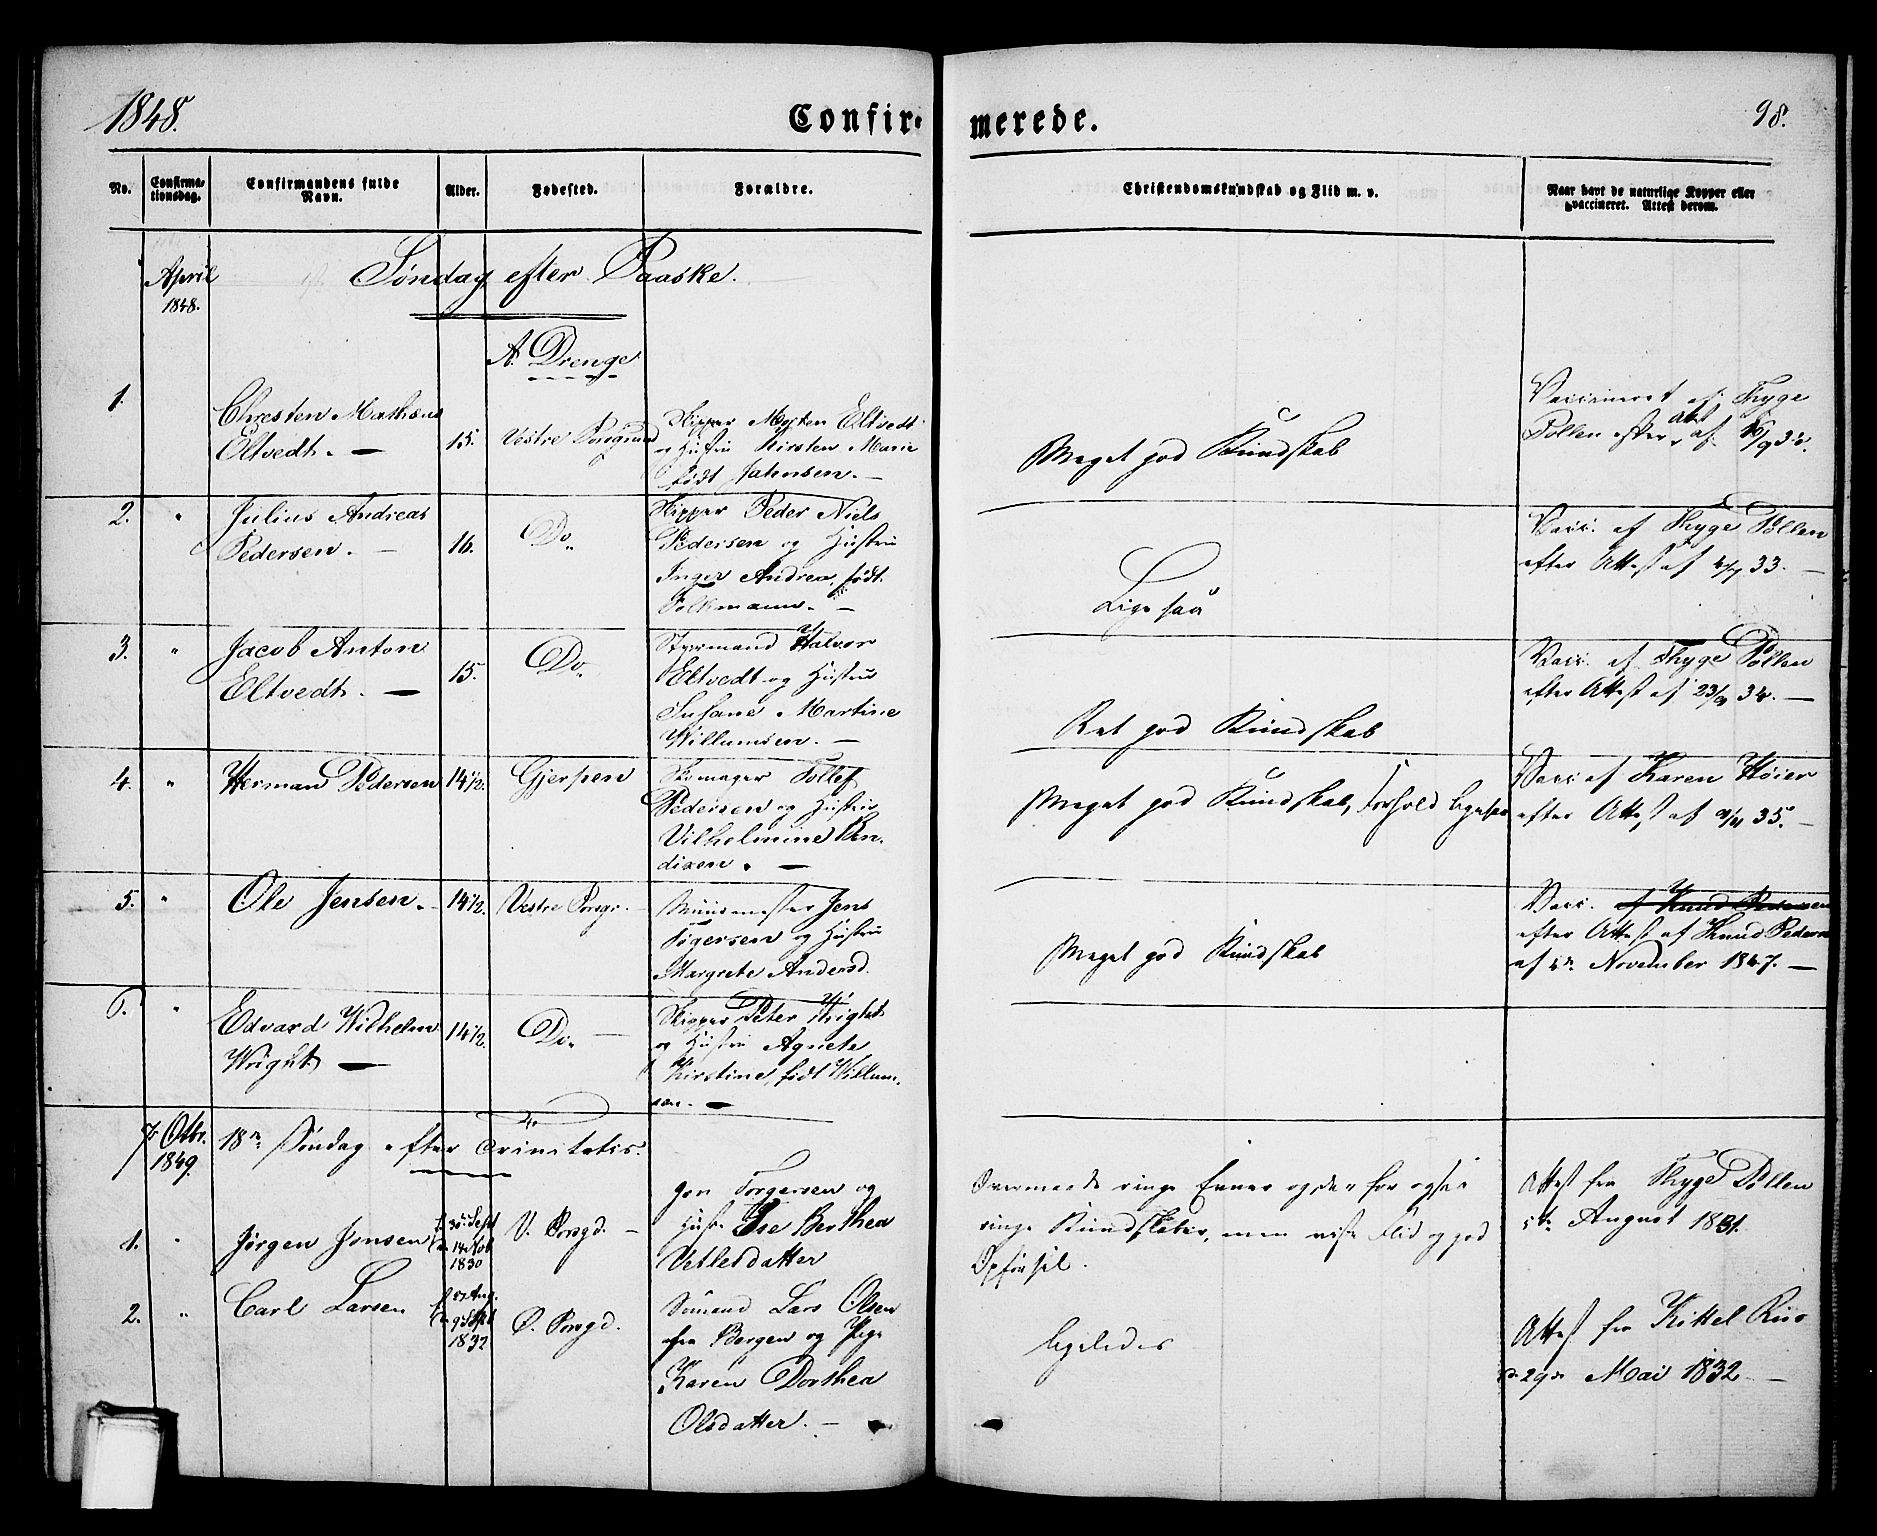 1848.
Confir-
merede.
98.
No.
Confirma-
tionsdag.
Confirmandens fulde
Navn.
Alder.
Fødested.
Forældre.
Christendomskundskab og Flid m. v.
Naar havt de naturlige Kopper eller
vaccineret. Attest derom.
April
1848.
Søndag efter Paaske.
A. Drenge
1.
Chresten Mathæus
Eltvedt. —
15.
Vestre Porsgrund
Skipper Morten Eltvedt
og Hustru Kirsten Marie
født Jahnsen. —
Meget god Kundskab
Vaccineret af Thyge
Pollen efter Att af
2.
"
Julius Andreas
Pedersen. —
16.
Do.
Skipper Peder Niels
Pedersen og Hustru
Inger Andrea, født
Folkmann. —
Ligesaa
Vacc. af Thyge Pollen
efter Attest af 33. —
3.
"
Jacob Anton
Eltvedt. —
15.
Do.
Styrmand Halvor
Eltvedt og Hustru
Susane Martine
Willumsen. —
Ret god Kundskab
Vacc. af Thyge Pollen
efter Attest af 23/9 34. —
4.
"
Herman Pedersen
14 1/2.
Gjerpen
Skomager Tollef
Pedersen og Hustru
Vilhelmine Ben-
dixen. —
Meget god Kundskab, Forhold ligesaa
Vacc af Karen Høier
efter Attest af 35. —
5.
"
Ole Jensen.
14 1/2.
Vestre Porsgr.
Muurmester Jens
Togersen og Hustru
Margrete Andersd.
Meget god Kundskab
Vacc. af Knud Pedersen
efter Attest af Knud Peders
af November 1847. —
6.
"
Edvard Wilhelm
Wright. —
14 1/2.
Do. —
Skipper Peter Wright
og Hustru Agnete
Kirstine, født Willum-
sen. —
7. Octbr.
1849.
18n Søndag efter Trinitatis.
1.
"
Jørgen Jonsen
f. 30. Sept
14 Nov
1830
V. Porsgd. —
Jon Torgersen og
Hustr. Ise Berthea
Vetlesdatter
Overmaade ringe Evner og derfor ogsaa
ringe Kundskaber, men viist Flid og god
Opførsel.
Attest fra Thyge Pollen
5te August 1831.
2.
"
Carl Larsen
Aug.
9. Sept
1832
Ø. Porsgd.
Sømand Lars Olsen
fra Bergen og Pige
Karen Dorthea
Olsdatter. —
ligeledes
Attest fra Kittel Riis
29de Mai 1832 —